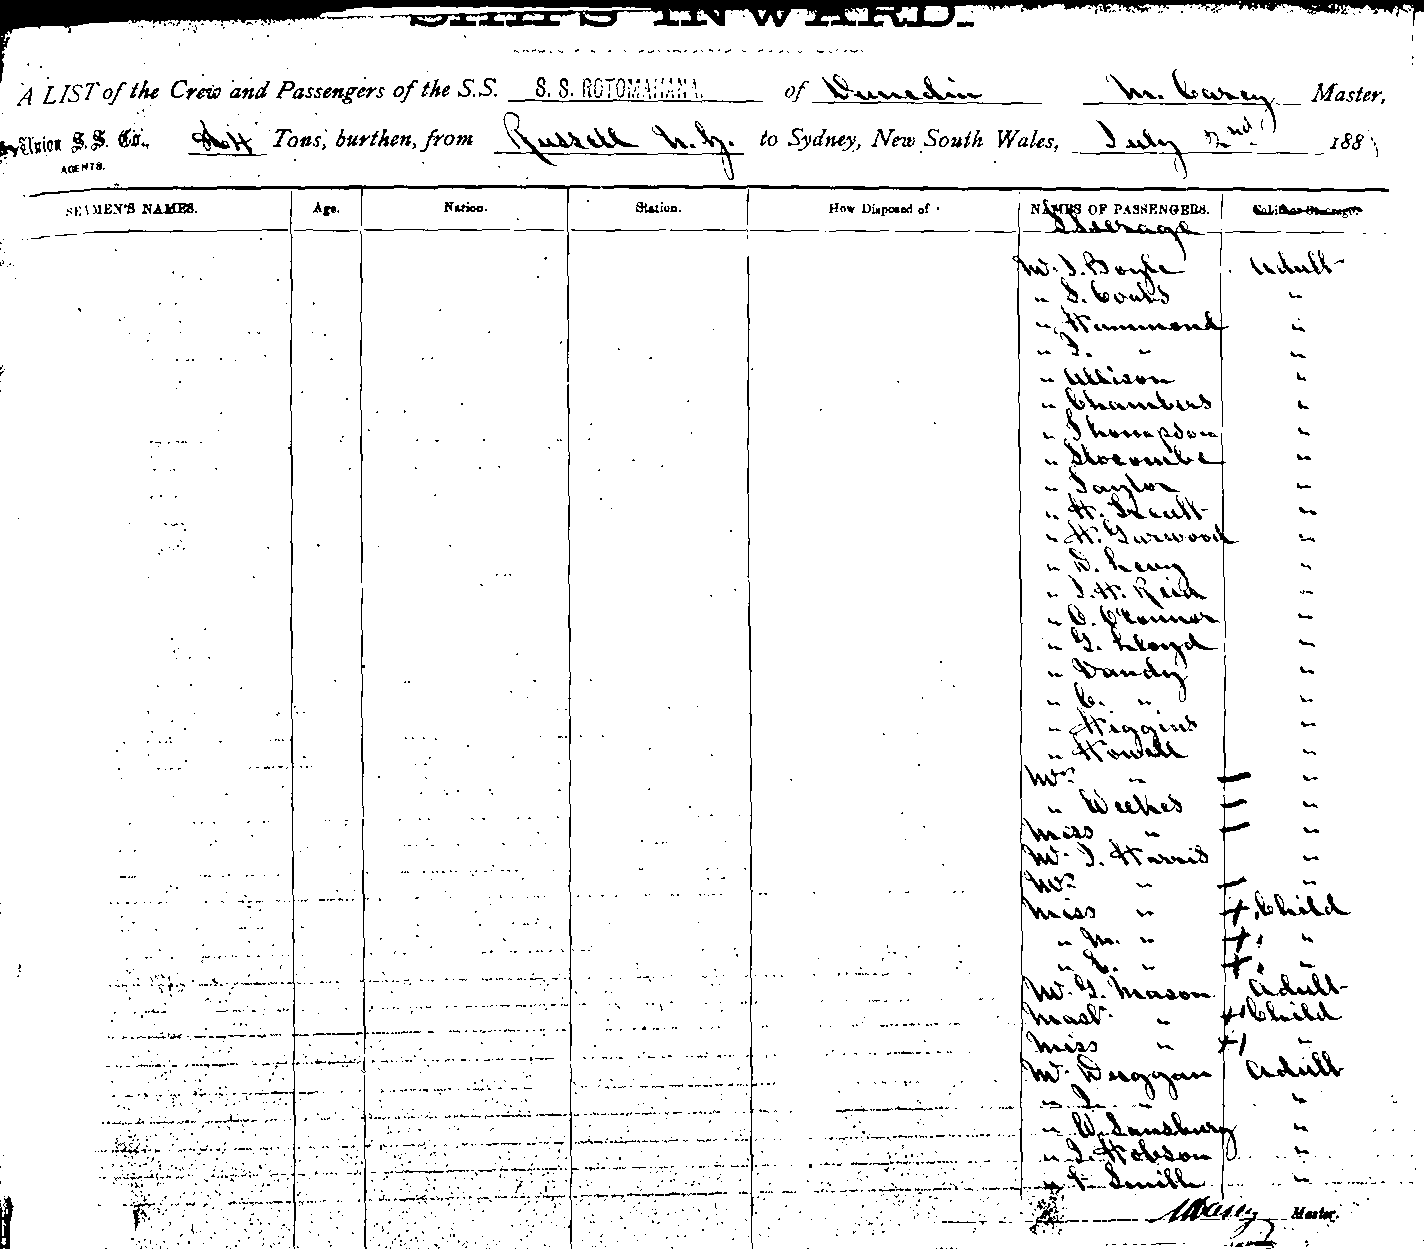 SHIPS INWARD.
A LIST of the Crew and Passengers of the S.S. S. S. ROTOMAHANA. of Dunedin M. Carey Master,
Union S. S. Co., AGENTS. Tons, burthen, from Russell N. Z. to Sydney, New South Wales, July 2nd 188
SEAMEN'S NAMES. Age. Nation. Station. How Disposed of NAMES OF PASSENGERS.
Steerage
Mr. J. Boyle Adult
" S. Coats "
" Hammond "
" J. " "
" Allison "
" Chambers "
" Thompson "
" Slocombe "
" Taylor "
" H. Scott "
" H. Garwood "
" D. Levy "
" J. H. Reid "
" C. O'Connor "
" G. Lloyd "
" Vandy "
" C. " "
" Higgins "
" Howell "
Mrs " — "
" Weekes — "
Miss " — "
Mr. J. Harris "
Mrs " — "
Miss " + Child
" M. " + "
" E. " + "
Mr. G. Mason Adult
Mastr " + Child
Miss " + "
Mr. Duggan Adult
" J. " "
" W. Sansbury "
" J. Hobson "
" F. Smith "
M Carey Master